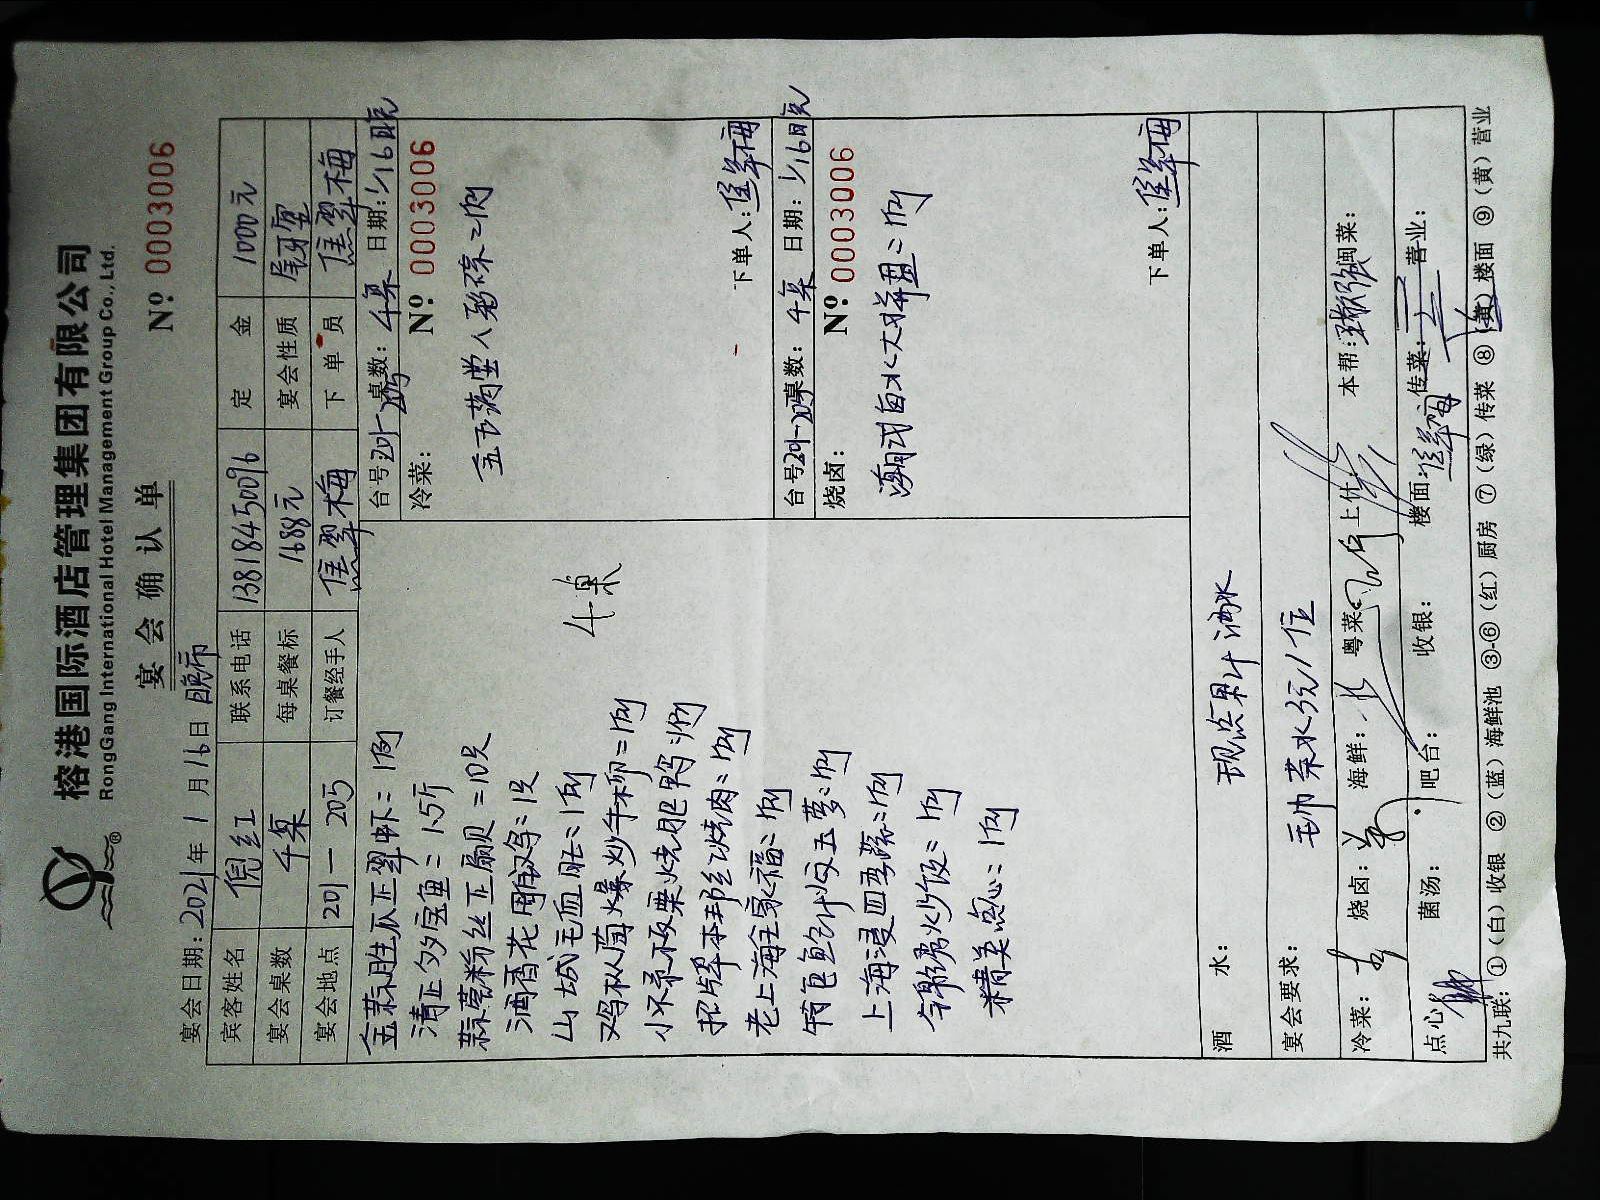 榕港国际酒店管理集团有限公司
RongGang International Hotel Management Group Co., Ltd.
宴会确认单
№ 0003006
宴会日期: 2021年 1 月 16 日 晚市
宾客姓名 倪红 联系电话 13818450096 定金 1000元
宴会桌数 4桌 每桌餐标 1688元 宴会性质
宴会地点 201-205 订餐经手人 翠梅 下单员 翠梅
金蒜胜瓜正翠虾=1例
清正多宝鱼=1.5斤
蒜蓉粉丝正扇贝=10只
酒香花雕鸡=1只
山城毛血旺=1例
鸡枞菌爆炒牛柳=1例
小米板栗烧肥鸭=1例
招牌本邦红烧肉=1例
老上海全家福=1例
上海浸四季蔬=1例
炒饭=1例
精美点心=1例
4桌
台号 201-205 桌数: 4桌 日期: 1/16晚
冷菜:
№ 0003006
五味八彩碟=1例
下单人: 翠梅
台号 201-205 桌数: 4桌 日期: 1/16晚
烧卤:
№ 0003006
潮式卤水大拼盘=1例
下单人: 翠梅
酒 水: 现点果汁酒水
宴会要求: 毛巾茶水5元/位
冷菜: 烧卤: 海鲜: 粤菜: 上什: 本帮: 闽菜:
点心: 菌汤: 吧台: 收银: 楼面: 翠梅 传菜: 营业:
共九联: ①(白)收银 ②(蓝)海鲜池 ③-⑥(红)厨房 ⑦(绿)传菜 ⑧(黄)楼面 ⑨(黄)营业